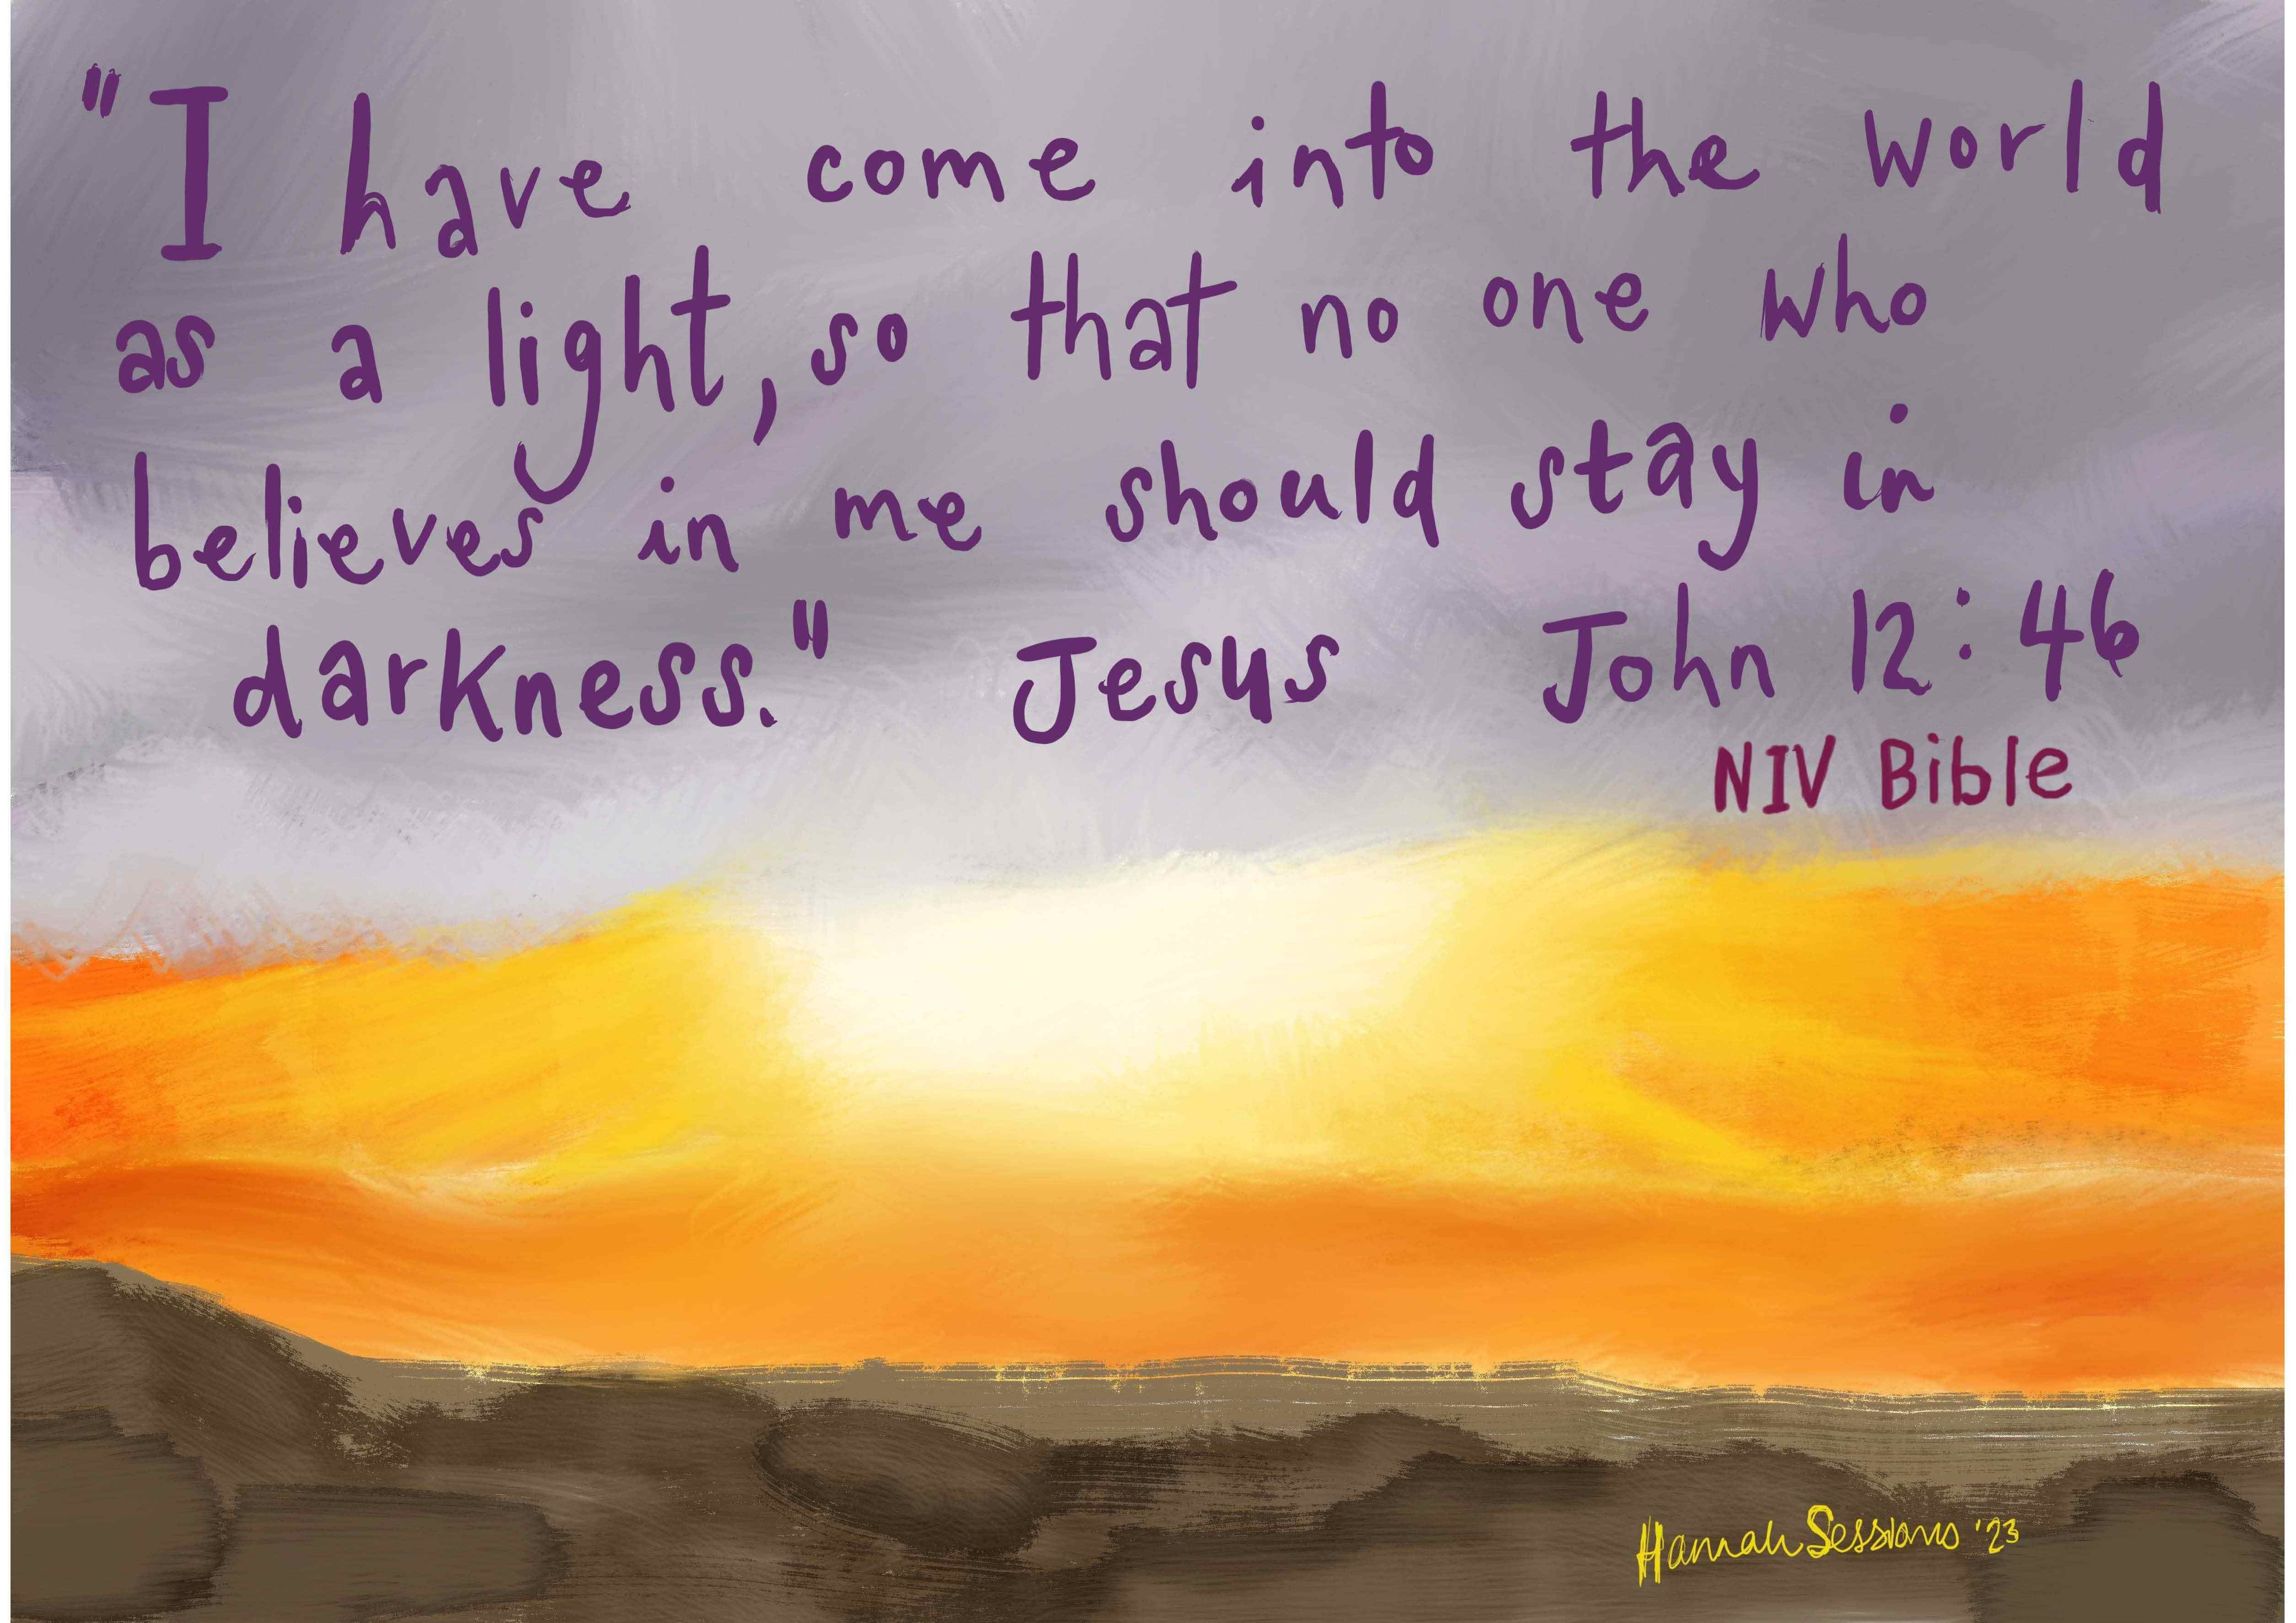 "I have come into the world
as a light, so that no one who
believes in me should stay in
darkness." Jesus John 12:46
NIV Bible
Hannah Sessions '23